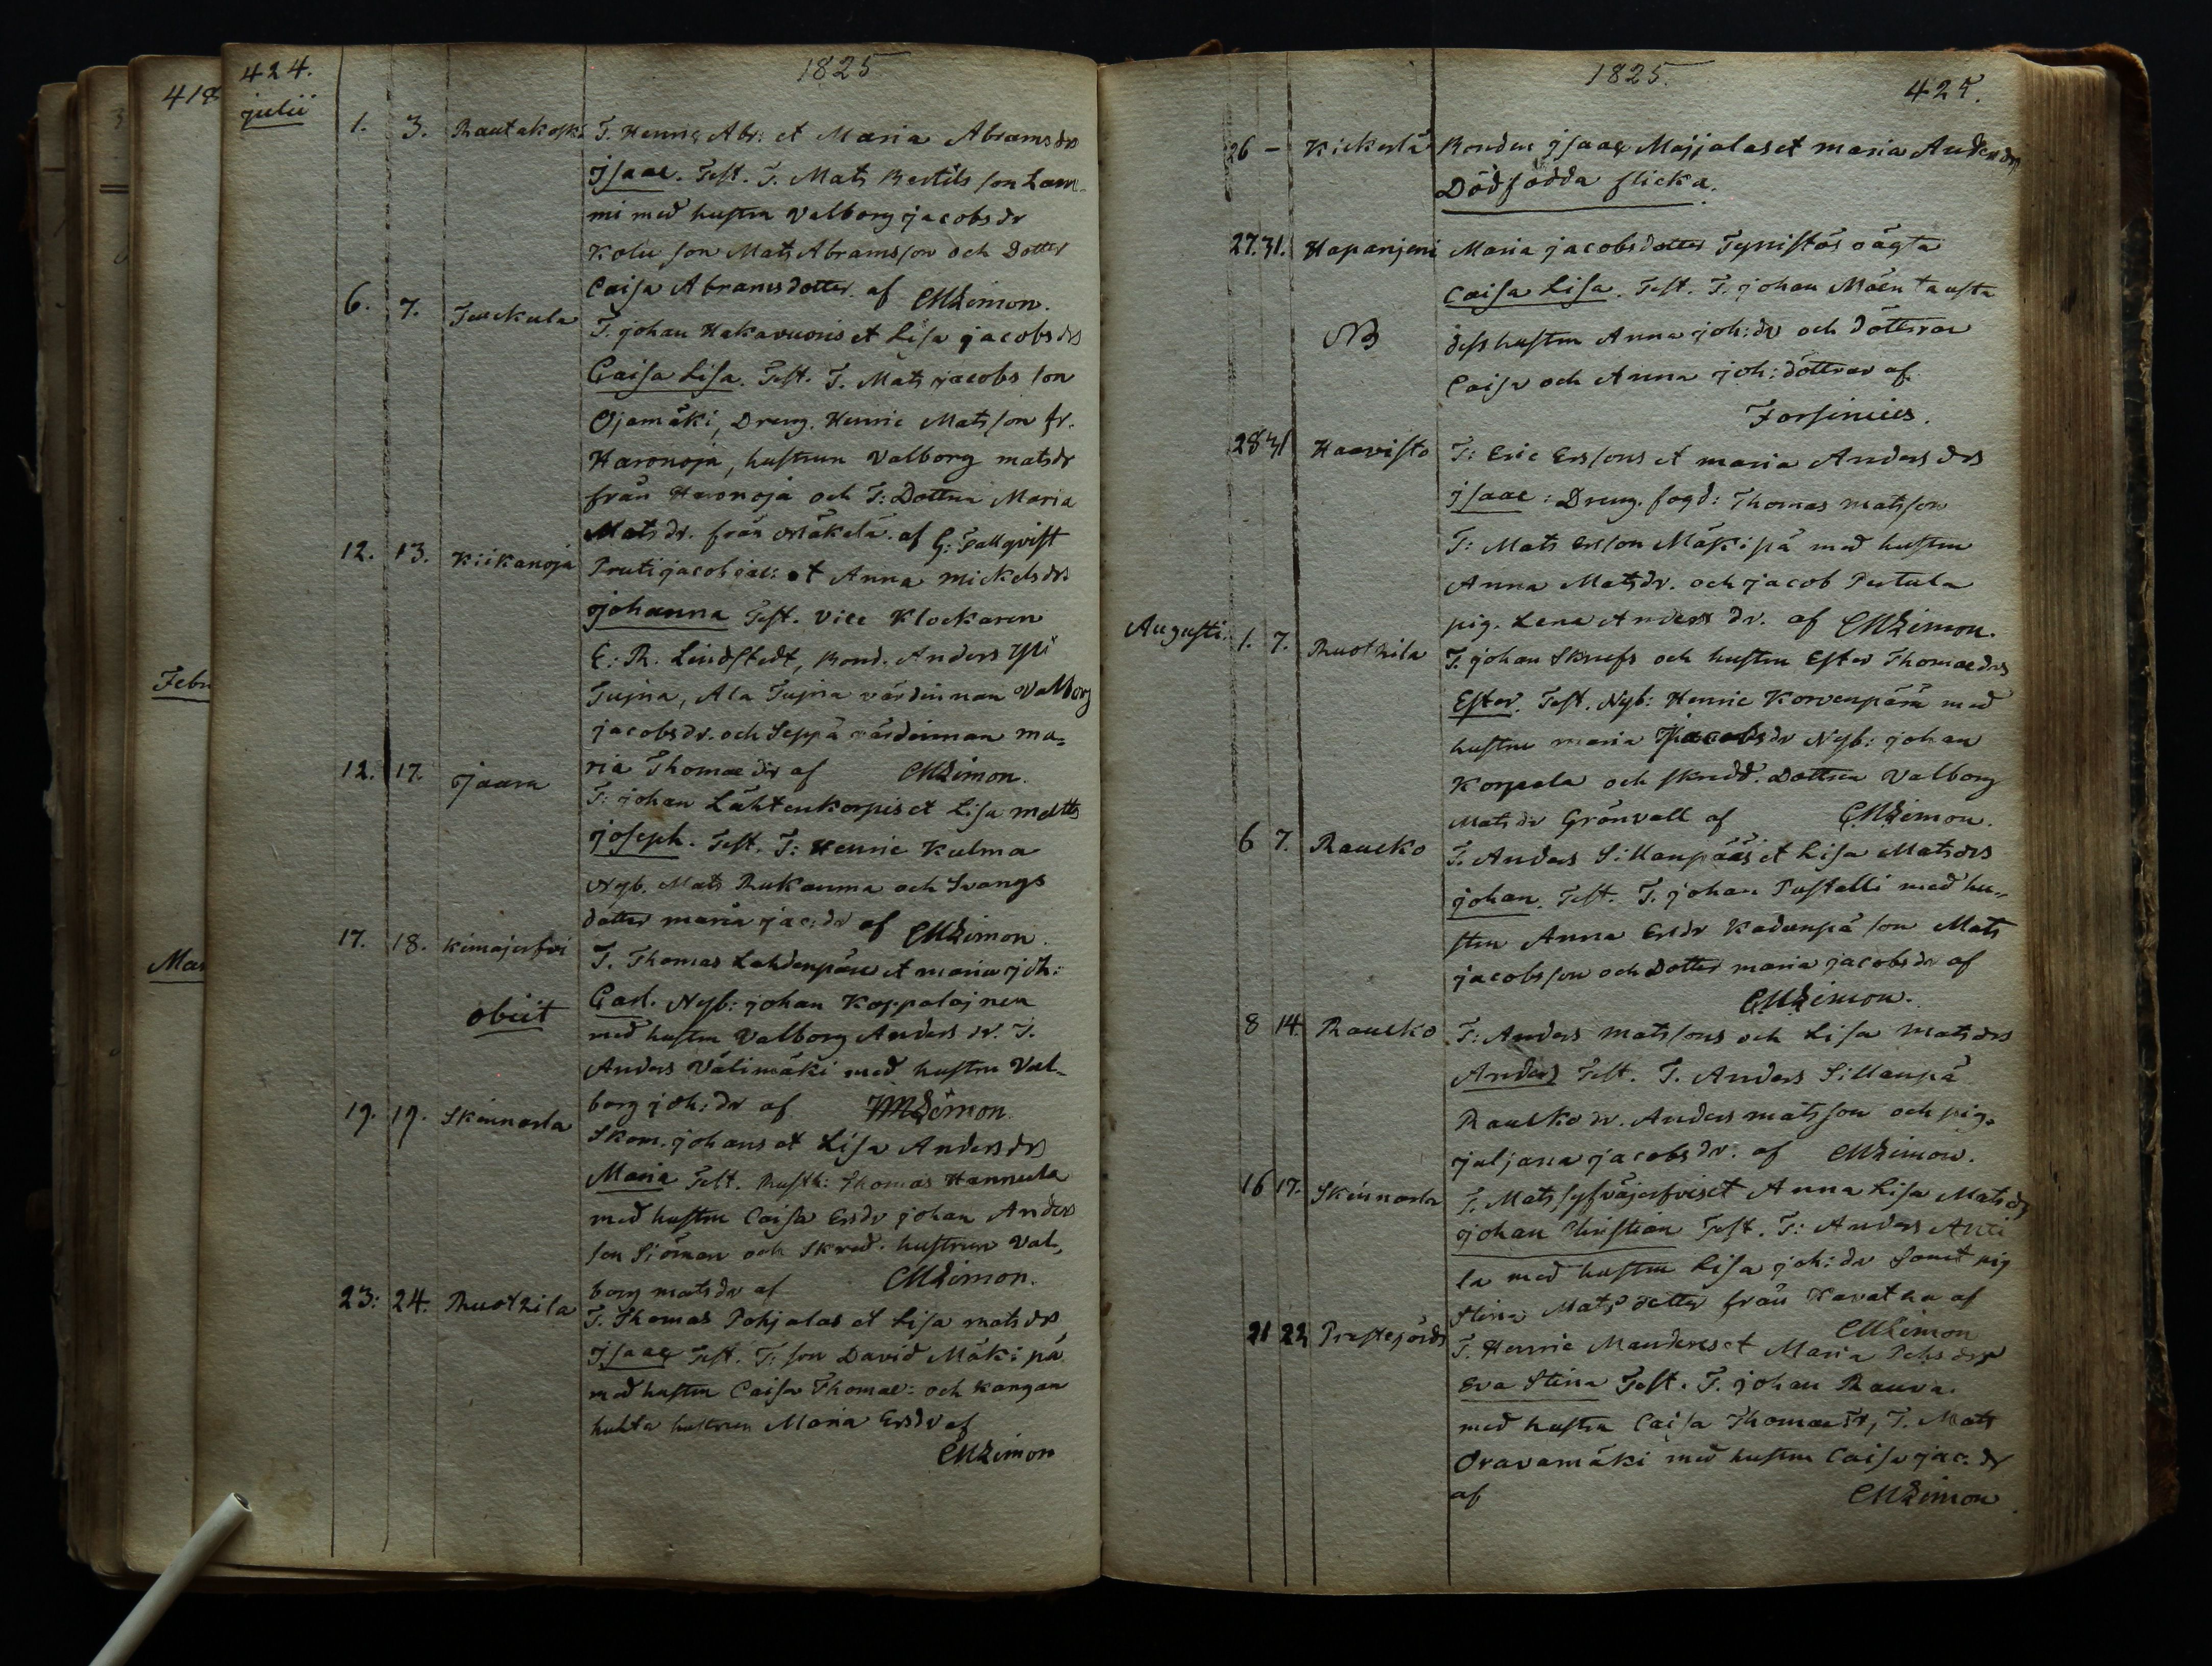 418
Febr
Mar
424.
1825
julii
1. 3. Rautakoski T. Henric Abr: et Maria Abramsdr
Isaac. Test. T. Mats Bertils son Lam-
mi med hustru Valborg jacobsdr
Kolu son Mats Abramsson och Dotter
Caisa Abramsdotter af CMZimon.
6. 7. T. johan Hakavuoris et Lisa jacobsdr
Caisa Lisa. Test. T. Mats jacobs son
Ojamäki, Dreng. Henric Matsson fr.
Haronoja, hustrun Valborg matsdr
från Haronoja och T: Dottren Maria
Matsdr. från Mäkelä. af G: Tallqvist
12. 13. Kiikanoja Pruti jacob jac: et Anna Mickelsdr.
johanna Test. Vice Klockaren
E: R. Lindstedt, Bond. Anders Yli
Tujna, Ala Tujna värdinnan Valborg
jacobsdr. och Seppä värdinnan ma-
ria Thomaedr af CMZimon.
12. 17. Jaara T: johan Lähtenkorpis et Lisa
joseph. Test. T: Henric Kulma
Nyb. Mats Rukanma och Svangs
dotter maria jac:dr af CMZimon.
17. 18. Kimajerfvi T. Thomas Lahdenpäus et maria joh:
obiit Carl. Nyb: johan Koppalojnen
med hustru Valborg Anders dr. T.
Anders Välimäki med hustru Val-
borg joh:dr af CMZimon.
19. 19. Skinnarla Skom. johans et Lisa Andersdr
Maria Test. Rusth: Thomas Hannula
med hustru Caisa Ersdr johan Anders
son Siöman och Skred. hustrun Val-
borg matsdr af CMZimon.
23: 24. Ruotzila T. Thomas Pohjalas et Lisa matsdr
Isaac Test. T: son David Mäkipä
med hustru Caisa Thomae: och Kangan
huhta hustrun Maria Ersdr af
CMZimon
1825.
425.
26 - Kickerlä Bonden Isaac Majjalas et maria Andersdr
Dödfödda flicka.
27. 31. Hapanjeni Maria jacobsdotter Typistös oägta
Caisa Lisa. Test. T. johan Mäentausta
NB dess hustru Anna joh:dr och döttrar
Caisa och Anna joh: döttrar af
Forsinius.
28 31 Haavisto T: Eric Erssons et maria Andersdr
Isaac: Dreng. fogd: Thomas matsson
T: Mats Ersson Mäkipä med hustru
Anna Matsdr. och jacob Pertula
pig. Lena Andersdr. af CMZimon.
Augusti. 1. 7. Ruotzila T. johan Skrufs och hustru Ester Thomaedr
Ester. Test. Nyb: Henric Korvenpää med
hustru maria jacobsdr Nyb: johan
Korpela och skredd. Dottren Valborg
Matsdr Grönvall af CMZimon.
6 7. Rausko T. Anders Sillanpääs et Lisa Matsdr
johan. Test. T. johan Pustelli med hu-
stru Anna Ersdr son Mats
jacobsson och Dotter maria jacobsdr af
CMZimon.
8 14. Rausko T: Anders matssons och Lisa matsdr
Anders Test. T. Anders Sillanpä
Rausko dr. Anders matsson och pig.
juljana jacobsdr. af CMZimon.
16 17. Skinnarla T. Mats Syfväjerfvis et Anna Lisa Matsdr
johan Christian Test. T: Anders Anti
la med hustru Lisa joh:dr samt pig
Stina Mats dotter från Havatha af
CMZimon
21 22 Prestegårds T. Henric Manderes et Maria Pehrsdr
Eva Stina Test. T. johan Rauva.
med hustru Caisa Thomaedr, T. Mats
Oravamäki med hustru Caisa jac. dr
af CMZimon